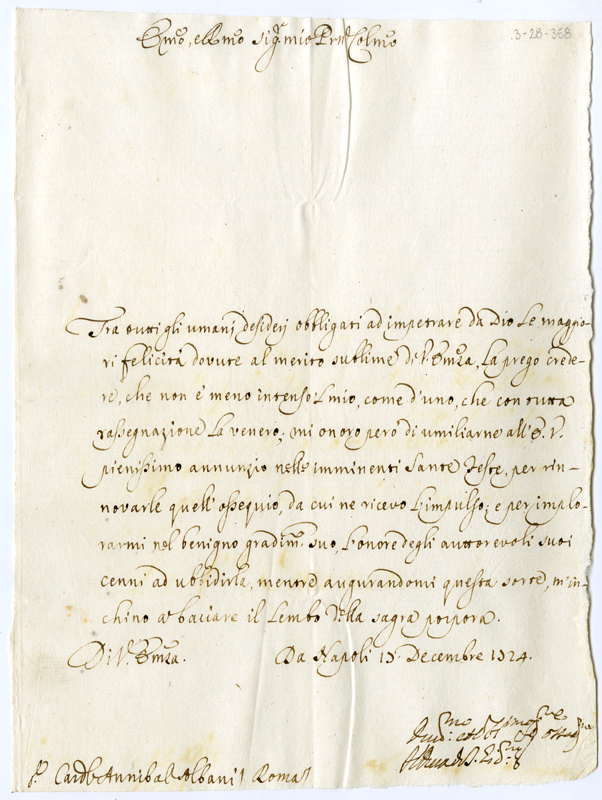 3-28-358
Emo, e Rmo sig.r mio Prne Colmo
Tra tutti gli umani desiderj obbligati ad impetrare da Dio Le maggio-
ri felicità dovute al merito sublime di V. Emza, La prego crede-
re, che non è meno intenso L mio, come d'uno, che con tutta
rassegnazione La venero; mi onoro però di umiliarne all'E. V.
pienissimo annunzio nelle imminenti Sante Feste, per rin-
novarle quell'ossequio, da cui ne ricevo L'impulso; e per implo-
rarmi nel benigno gradim.to suo, L'onore degli auttorevoli suoi
cenni ad ubbidirla, mentre augurandomi questa sorte, m'in-
chino a' bacciare il Lembo della sagra porpora.
Di V. Emza.
Da Napoli 15 Decembre 1724.
Card.l Annibal Albani Roma